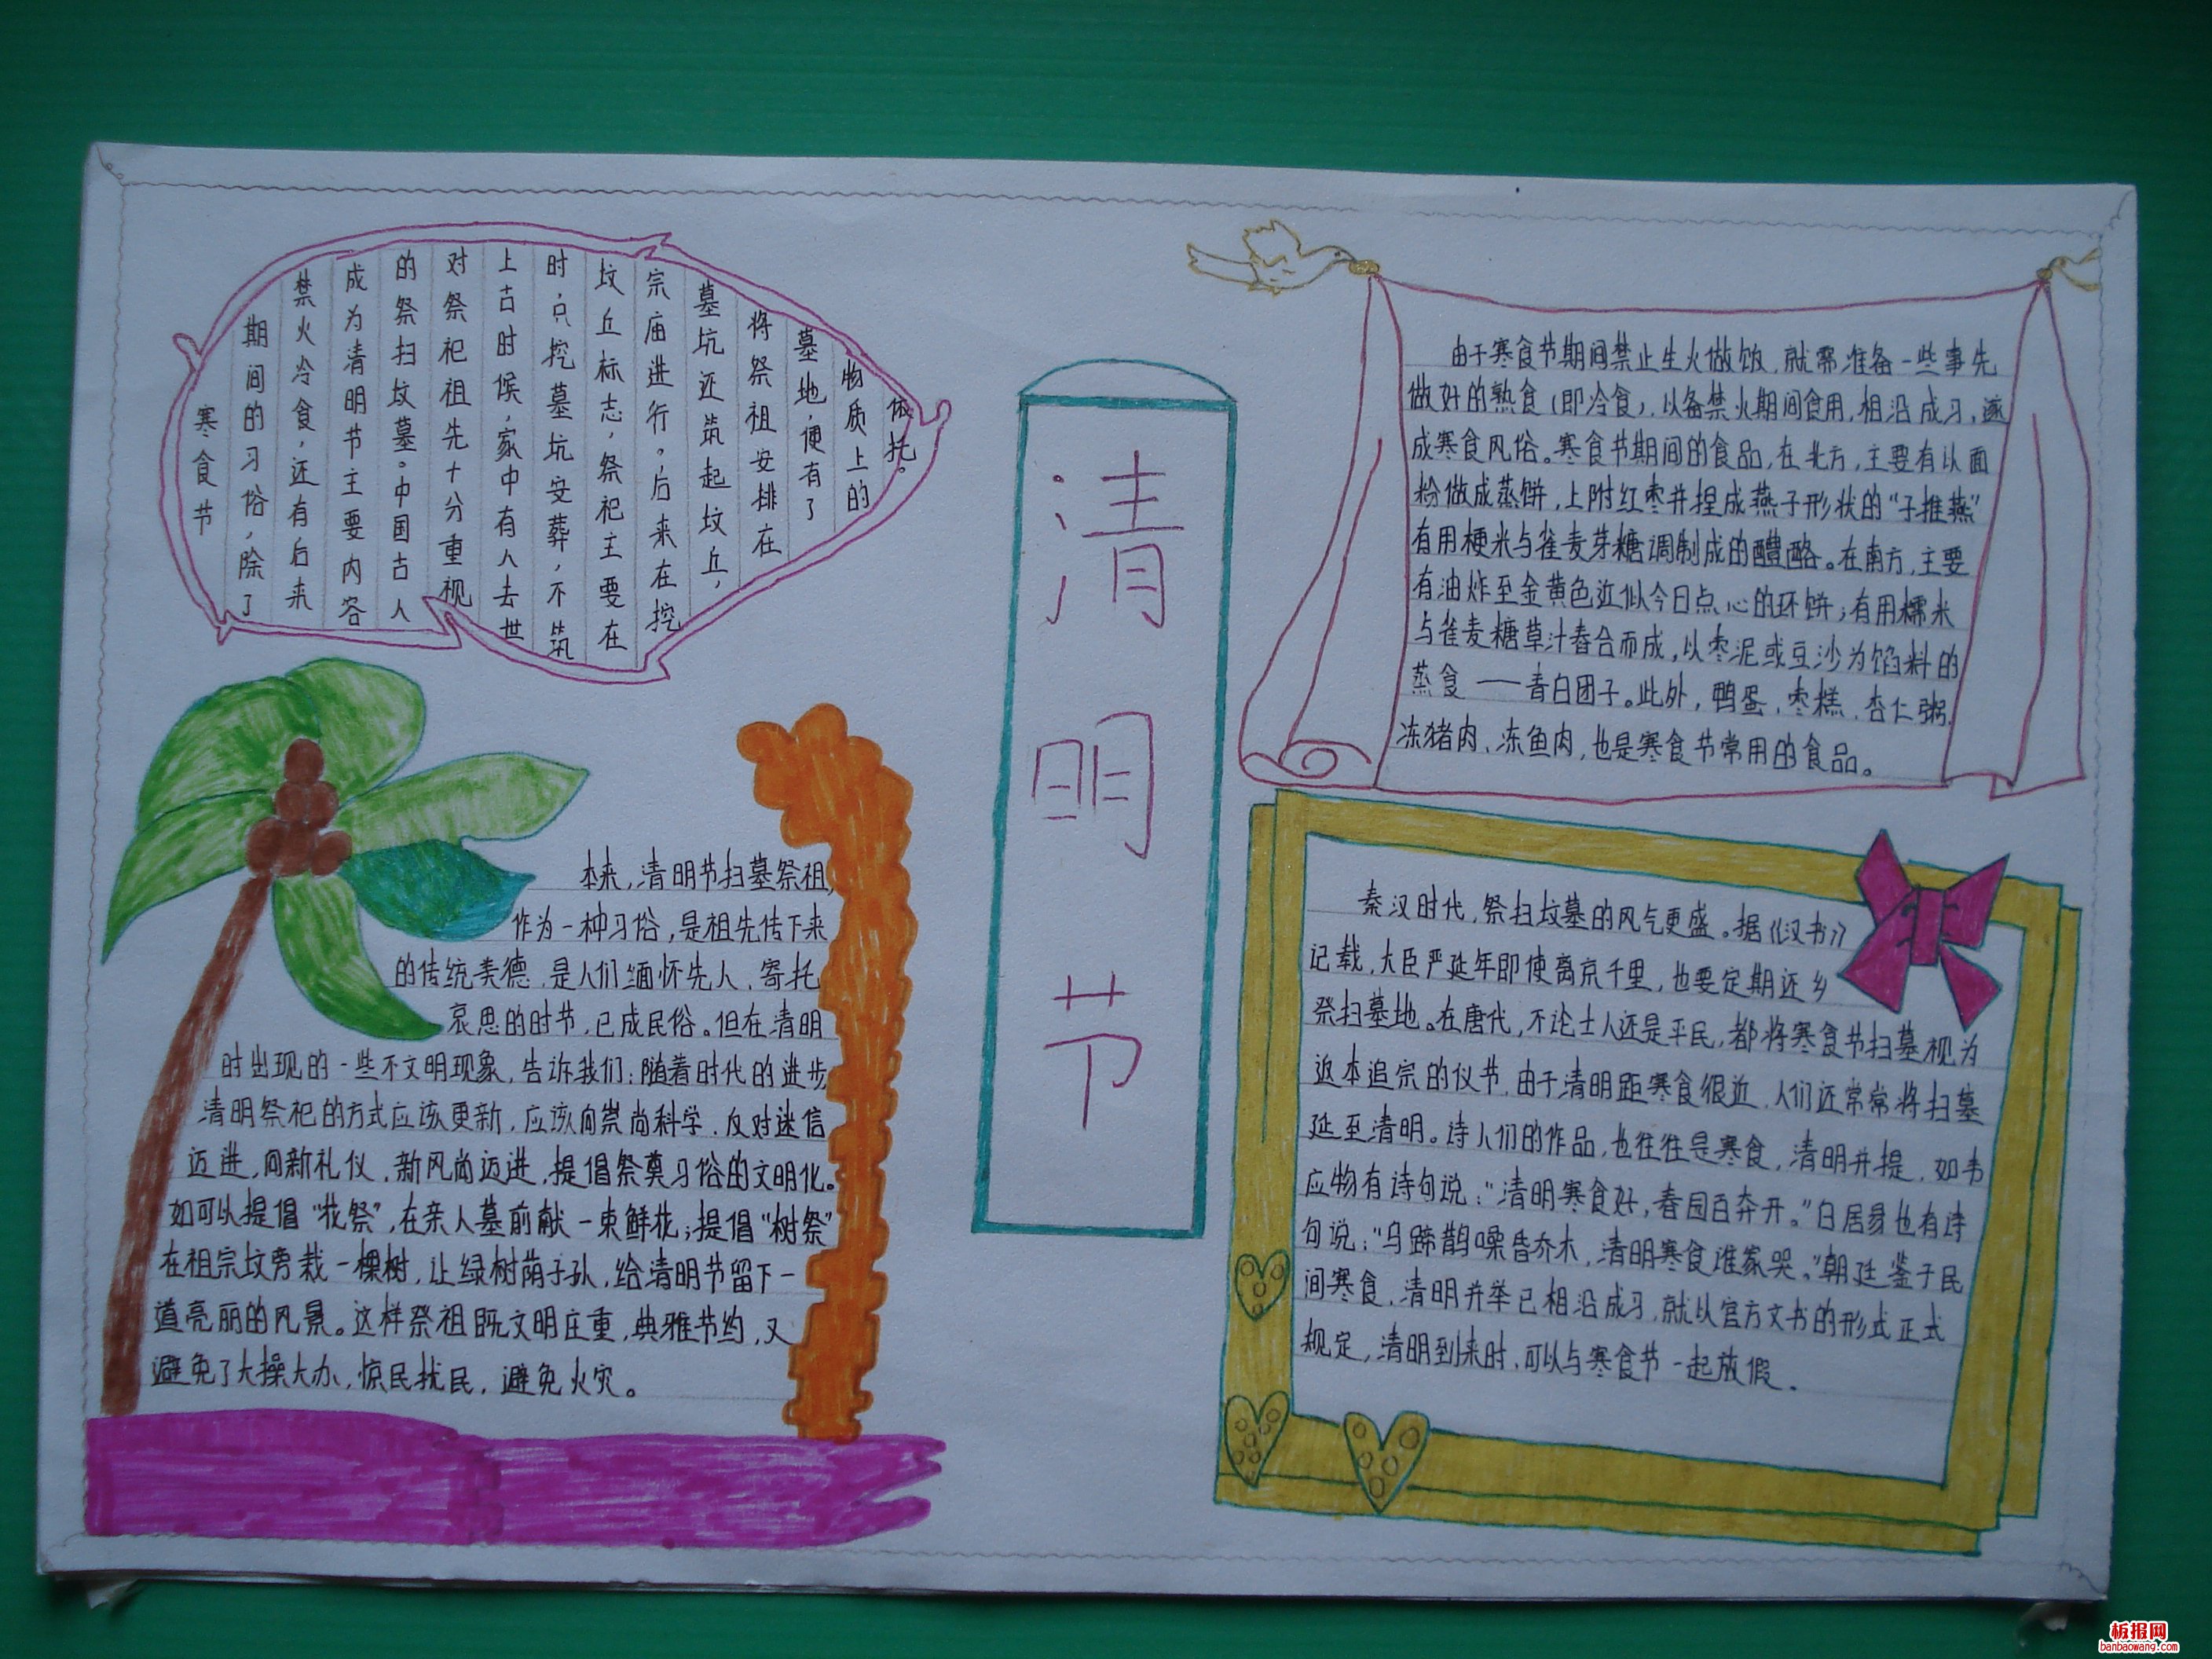 寒食节
期间的习俗，除了
禁火冷食，还有后来
成为清明节主要内容
的祭扫坟墓。中国古人
对祭祀祖先十分重视
上古时候，家中有人去世
时，只挖墓坑安葬，不筑
坟丘标志，祭祀主要在
宗庙进行。后来在挖
墓坑还筑起坟丘，
将祭祖安排在
墓地，便有了
物质上的
依托。
本来，清明节扫墓祭祖，
作为一种习俗，是祖先传下来
的传统美德，是人们缅怀先人、寄托
哀思的时节，已成民俗。但在清明
时出现的一些不文明现象，告诉我们：随着时代的进步
清明祭祀的方式应该更新，应该向崇尚科学、反对迷信
迈进，向新礼仪、新风尚迈进，提倡祭奠习俗的文明化。
如可以提倡“花祭”，在亲人墓前献一束鲜花；提倡“树祭”
在祖宗坟旁栽一棵树，让绿树荫子孙，给清明节留下一
道亮丽的风景。这样祭祖既文明庄重，典雅节约，又
避免了大操大办，惊民扰民，避免火灾。
清明节
由于寒食节期间禁止生火做饭，就需准备一些事先
做好的熟食（即冷食），以备禁火期间食用，相沿成习，遂
成寒食风俗。寒食节期间的食品，在北方，主要有以面
粉做成蒸饼，上附红枣并捏成燕子形状的“子推燕”
有用梗米与雀麦芽糖调制成的醴酪。在南方，主要
有油炸至金黄色近似今日点心的环饼；有用糯米
与雀麦糖草汁舂合而成，以枣泥或豆沙为馅料的
蒸食——青白团子。此外，鸭蛋、枣糕、杏仁粥、
冻猪肉、冻鱼肉，也是寒食节常用的食品。
秦汉时代，祭扫坟墓的风气更盛。据《汉书》
记载，大臣严延年即使离京千里，也要定期还乡
祭扫墓地。在唐代，不论士人还是平民，都将寒食节扫墓视为
返本追宗的仪节，由于清明距寒食很近，人们还常常将扫墓
延至清明。诗人们的作品，也往往是寒食，清明并提，如韦
应物有诗句说：“清明寒食好，春园百卉开。”白居易也有诗
句说：“乌蹄鹊噪昏乔木，清明寒食谁家哭。”朝廷鉴于民
间寒食，清明并举已相沿成习，就以官方文书的形式正式
规定，清明到来时，可以与寒食节一起放假。
板报网
banbaowang.com